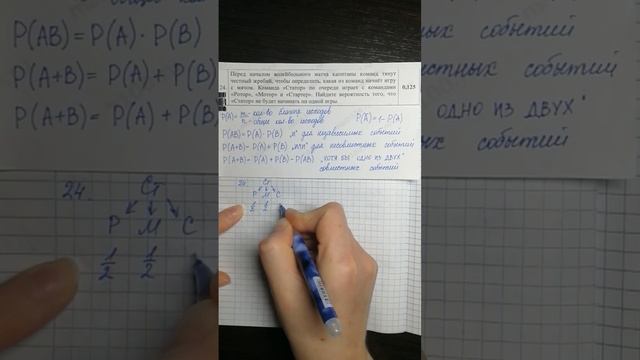 Перед началом волейбольного матча капитаны команд тянут
честный жребий, чтобы определить, какая из команд начнёт игру
24. с мячом. Команда «Статор» по очереди играет с командами 0,125
«Ротор», «Мотор» и «Стартер». Найдите вероятность того, что
«Статор» не будет начинать ни одной игры.
P(A)= m - кол-во благопр исходов
n - общее кол-во исходов
P(Ā) = 1 - P(A)
P(AB)= P(A)· P(B) "и" для независимых событий
P(A+B)= P(A)+ P(B) "или" для несовместных событий
P(A+B)= P(A)+ P(B) - P(AB) "хотя бы одно из двух"
совместных событий
24. Ст
Р М С
1/2 1/2
P(AB) = P(A) · P(B)
P(A+B) = P(A) + P(B)
P(A+B) = P(A) +
событий
событий
одно из двух"
событий
24.
Р М С
1/2 1/2